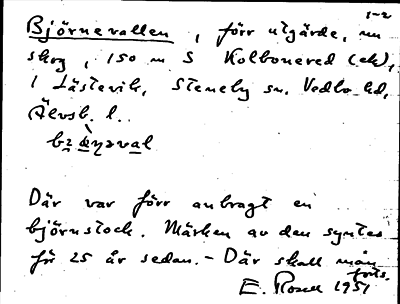 1-2
Björnevallen, förr utgärde, nu
skog, 150 m S Kolbonered (ek),
i Lästevik, Steneby sn, Vedbo hd,
Älvsb. l.
Där var förr anbragt en
björnstock. Märken av den syntes
för 25 år sedan. - Där skall man
forts.
E. Rosell 1951